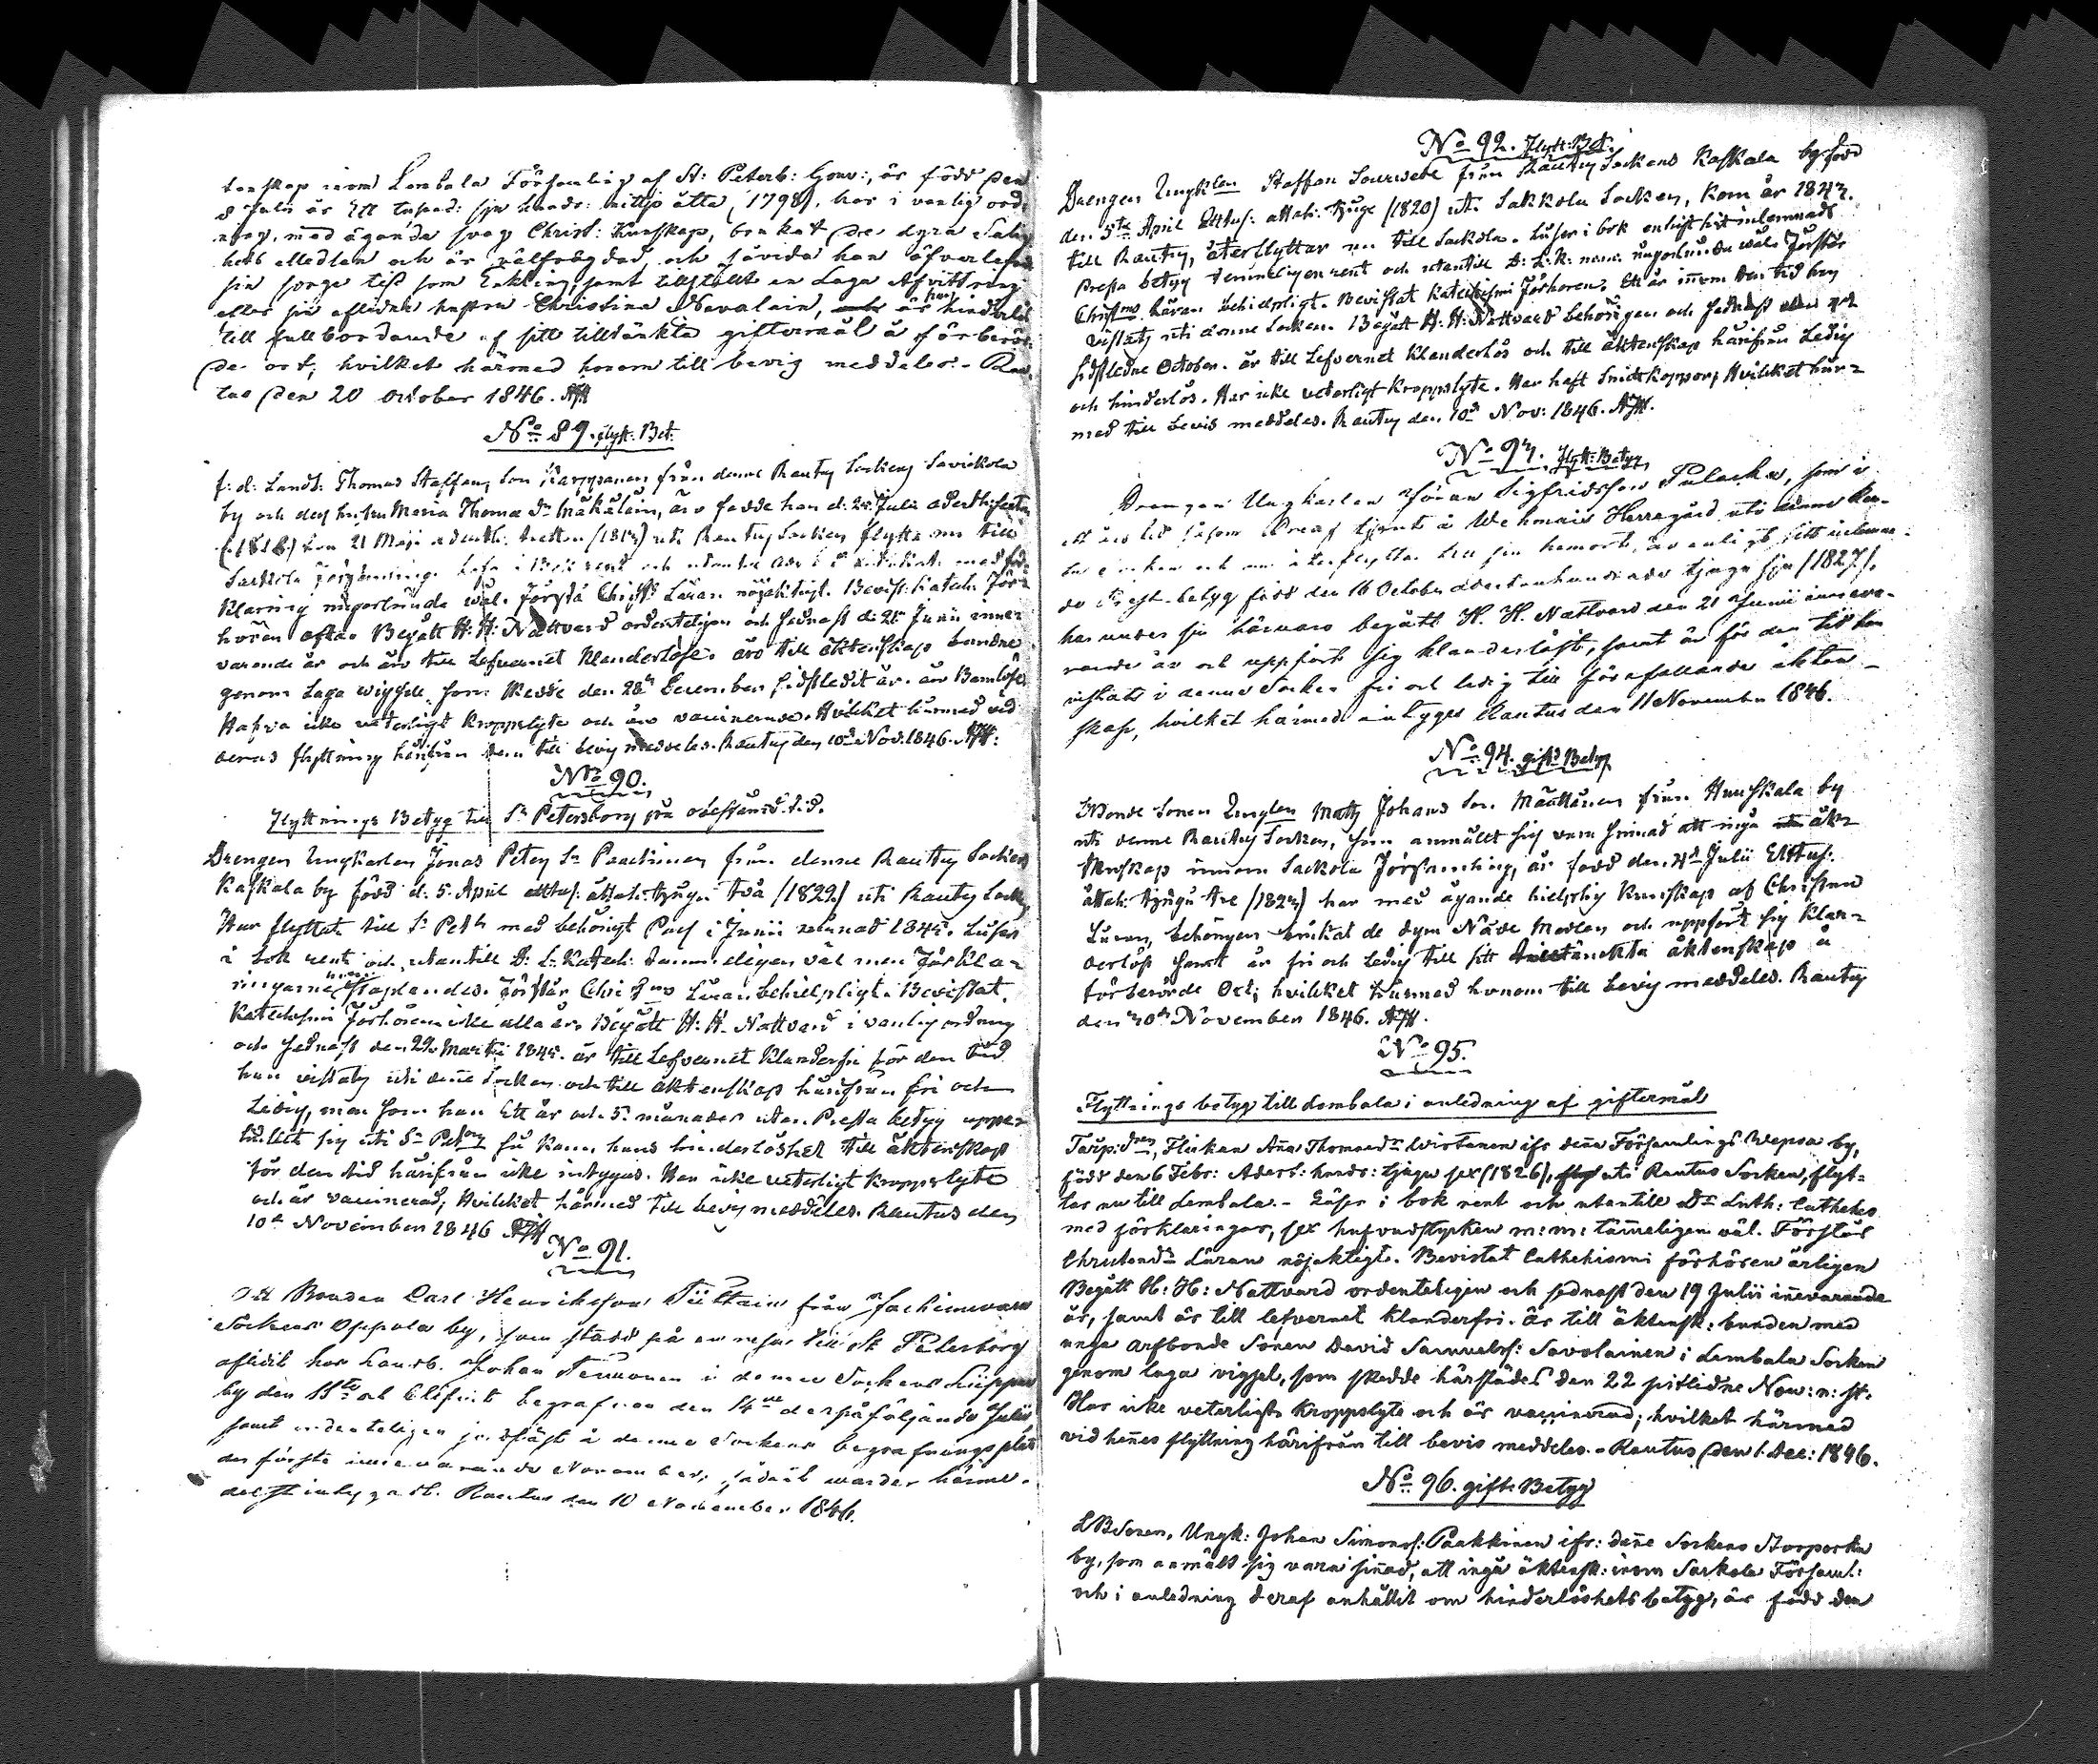 tenskap inom Lembala Församling af St: Peterb: Gouv:, är född den
8 Julii år Ett tusend: sju hundr: nittjo åtta (1798), har i vanlig ord-
ning, med ägande svag Christ: Kunskap, brukat de dyra Salig
hets medlen och är välfrägdad, och såvida han öfverlefvat
sin sorge tid som Enkling, samt tillställt en Laga Afvittring
efter sin aflidna hustru Christina Navalain, är han hinderlös
till fullbordande af sitt tilltänkta giftermål å förberör-
de ort; hvilket härmed honom till bevis meddelas. - Rau-
tus den 20 October 1846.
No 89. flytt: Bet:
f: d: Landb: Thomas Staffans Son Karppanen från denne Rautus Sockens Savickola
by och dess hustru Maria Thomæ Dr Mäkäläin, äro födde han d: 25 Julii
(1818) hon 21 Maji aderth: tretton (1813) uti Rautus Socken flytta nu till
Sackola Församling.
klaring någorlunda wäl. Förstå Christi Läran nöjaktigt. Bevist. Katech: För-
hören oftar Begått H: H: Nattvard ordenteligen och sednast d: 25 Junii inne-
varande år och äro till Lefvernet klanderlöse: äro till äktenskap bundne
genom Laga wigsell, som skedde den 28de December sidstledit år. äro Barnlöse,
Hafva icke veterligt kroppslyte och äro vaccinerade. Hvilket härmed vid
deras flyttning härifrån dem till bevis meddelas. Rautus den 10de Nov. 1846.
No 90.
Flyttnings Betyg till St Petersborg på obestämd tid.
Drengen Ungkarlen Jonas Peters Sn Paackinen från denne Rautus Sockens
Kaskala by född d: 5 April ettus: åttah: tjugu två (1822) uti Rautus Sock,
Har flyttat till St Petb med behörigt Pass i Junii månad 1845. Läser
i bok rent och utantill D: L: Katech: tämmeligen väl men Förkla-
ringarne staplandes. Förstår Christna Läran behielpligt. Bevistat
Katechismi Förhören icke alla år. Begått H: H: Nattvard i vanlig ordning
och sednast den 29 Martii 1845. är till Lefvernet Klanderfri för den tid
han vistats uti denne Socken och till äktenskap härifrån fri och
Ledig, men som han Ett år och 5 månader utan Presta betyg uppe-
hållit sig uti St Petbrg så kann hans hinderlöshet till äktenskap
för den tid härifrån icke intygas. Har icke veterligt kroppslyte
och är vaccinerad; Hvilket härmed till bevis meddelas. Rautus den
10de November 1846
No 91.
Att Bonden Carl Henriksson Tiittain från Jachimvara
Sockens Oppola by, som stadd på en resa till St Petersborg
aflidit hos Landb. Johan Temonen i denne Sockens Liippua
by den 11te och blifvit begrafven den 14de derpåföljande Julii
samt ordenteligen jordfäst å denne Sockens begrafningsplats
den förste innevarande November, sådant warder härme-
delst intygadt. Rautus den 10 November 1846.
No 92. Flytt: Bet.
Drengen Ungklen Staffan Lourwebe från Rautus Sockens Kaskala by född
den 5te April Ettus: åttah: tjuge (1820) uti Sakkola Socken, kom år 1843.
till Rautus, återflyttar nu till Sackola. Läser i bok enligt hit inlemnade
Presta betyg temmeligen rent och utantill D: L: K: någorlunda wäl. Förstår
Christnes Läran behielpligt. Bevistat Katechismi Förhören. Ett är inom den tid han
vistats uti denne Socken. Begått H: H: Nattvard behörigen och sednast
sidstledne October. är till Lefvernet klanderlös och till äktenskap härifrån Ledig
och hinderlös. Har icke veterligt Kroppslyte. Har haft Smittkoppor; Hvilket här-
med till bevis meddelas. Rautus den 10de Nov: 1846.
No 93. Flytt: Betyg
Drengen Ungkarlen Göran Sigfridsson Pulacka, som i
ett års tid såsom dreng tjent å Wehmais Herregård uti denne
Socken och nu återflyttar till sin hemort, är enligt sitt inlemna-
de Prest-betyg född den 16 October adertonhundrade tjugu sju (1827),
har under sin härvaro begått H. H. Nattvard den 21 Junii inneva-
rande år och uppfört sig klanderlöst, samt är för den tid han
vistats i denne Socken fri och ledig till förefallande äkten-
skap, hvilket härmed intygas Rautus den 11 November 1846.
No 94. gift: Betyg
Bonde Sonen Ungkn Matts Johans Son Määttänen från Huuskala by
uti denne Rautus Socken, som anmält sig vara sinnad att ingå äk-
tenskap innom Sackola Församling, är född den 4de Julii Ettus:
åttah: tjugu tre (1823) har med ägande hielplig kunskap af Christna
Läran, behörigen brukat de dyra Nåde Medlen och uppfört sig klan-
derlös samt är fri och Ledig till sitt tilltänckta äktenskap å
förberörde Ort; hvilket härmed honom till bevis meddeles. Rautus
den 30de November 1846.
No 95.
Flyttnings betyg till Lembala i anledning af giftermål
Torp: Drn, Flickan Ana Thomædr Wirtanen ifr denna Församlings Wepsa by,
född den 6 Febr: Adert: hundr: tjugu sex (1826), uti Rautus Socken, flyt-
tar nu till Lembala. - Läser i bok rent och utantill Dr Luth: Cathekes
med förklaringar, sex hufvudstycken m: m: tämeligen väl. Förstår
Christends Läran nöjaktigt. Bevistat Cathekismi förhören årligen
Begått H: H: Nattvard ordenteligen och sednast den 19 Julii inevarande
år, samt är till lefvernet klanderfri. Är till äktensk: bunden med
unga arfbonde Sonen David Samuelss: Savolainen i Lembala Socken
genom laga vigsel, som skedde härstädes den 22 sistlidne Nov: n: st.
Har icke veterligt Kroppslyte och är vaccinerad; hvilket härmed
vid henes flyttning härifrån till bevis meddeles. - Rautus den 1 Dec: 1846.
No 96. gift: Betyg
LBSonen, Ungk: Johan Simonss: Paakkinen ifr: dene Sockens Storporkn
by, som anmält sig vara sinad, att ingå äktensk: inom Sackola Församl:
och i anledning deraf anhållit om hinderlöshets betyg, är född den